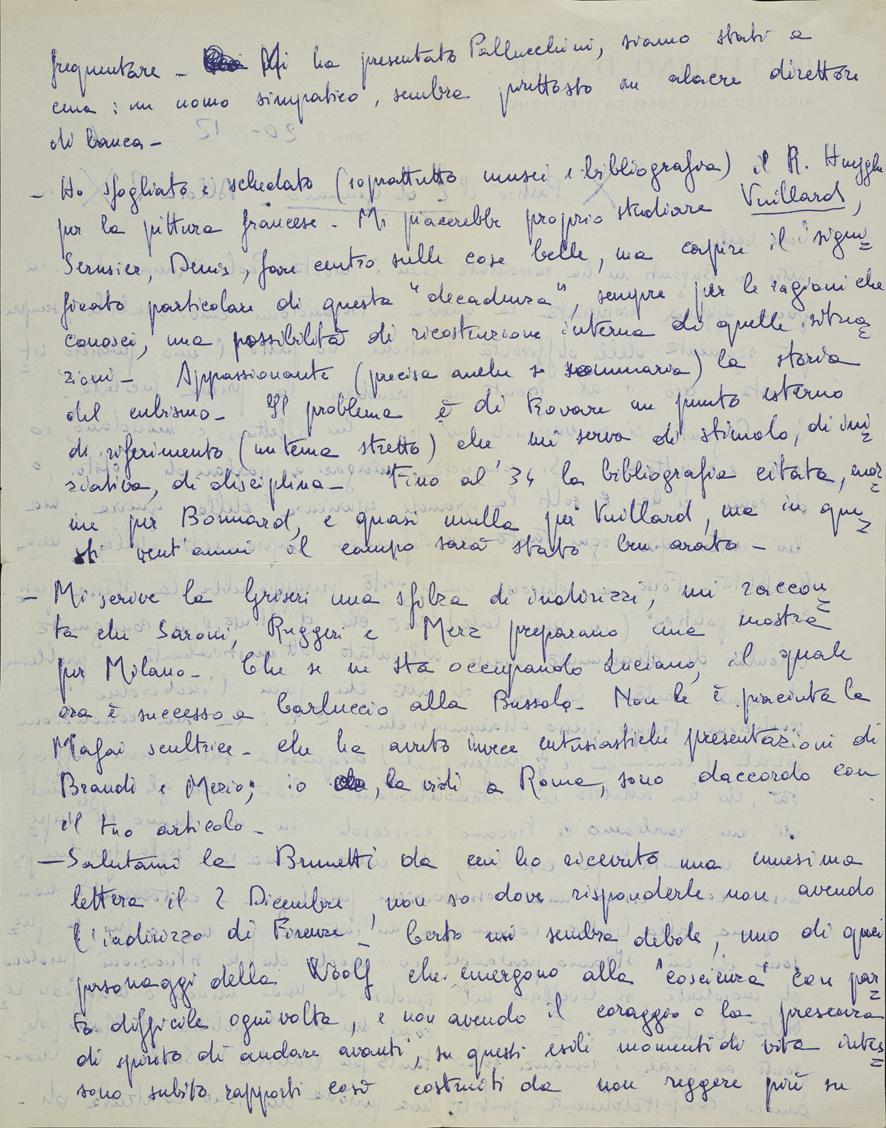 frequentare – Mi ha presentato Pallucchini, siamo stati a
cena: un uomo simpatico, sembra piuttosto un alacre direttore
di banca –
– Ho sfogliato e schedato (soprattutto musei e bibliografia) il R. Huyghe
per la pittura francese – Mi piacerebbe proprio studiare Vuillard,
Serusier, Denis, fare centro sulle cose belle, ma capire il "signi=
ficato particolare di questa "decadenza", sempre per le ragioni che
conosci, una possibilità di ricostruzione interna di quelle situa=
zioni – Appassionante (precisa anche se sommaria) la storia
del cubismo – Il problema è di trovare un punto esterno
di riferimento (un tema stretto) che mi serva di stimolo, di ini=
ziativa, di disciplina – Fino al '34 la bibliografia citata, enor=
me per Bonnard, e quasi nulla per Vuillard, ma in que=
sti vent'anni il campo sarà stato ben arato –
– Mi scrive la Griseri una sfilza di indirizzi, mi raccon=
ta che Saroni, Ruggeri e Merz preparano una mostra
per Milano – Che se ne sta occupando Luciano, il quale
ora è successo a Carluccio alla Bussola – Non le è piaciuta la
Mafai scultrice – che ha avuto invece entusiastiche presentazioni di
Brandi e Mezio; io , la vidi a Roma, sono daccordo con
il tuo articolo –
– Salutami la Brunetti da cui ho ricevuto una ennesima
lettera il 2 Dicembre, non so dove risponderle non avendo
l'indirizzo di Firenze! Certo mi sembra debole, uno di quei
personaggi della Woolf che emergono alla "coscienza" con par=
to difficile ogni volta, e non avendo il coraggio o la presenza
di spirito di andare avanti, su questi esili momenti di vita intes=
sono subito rapporti così costruiti da non reggere più su